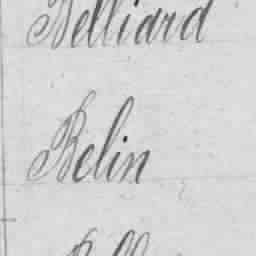 Belliard
Belin